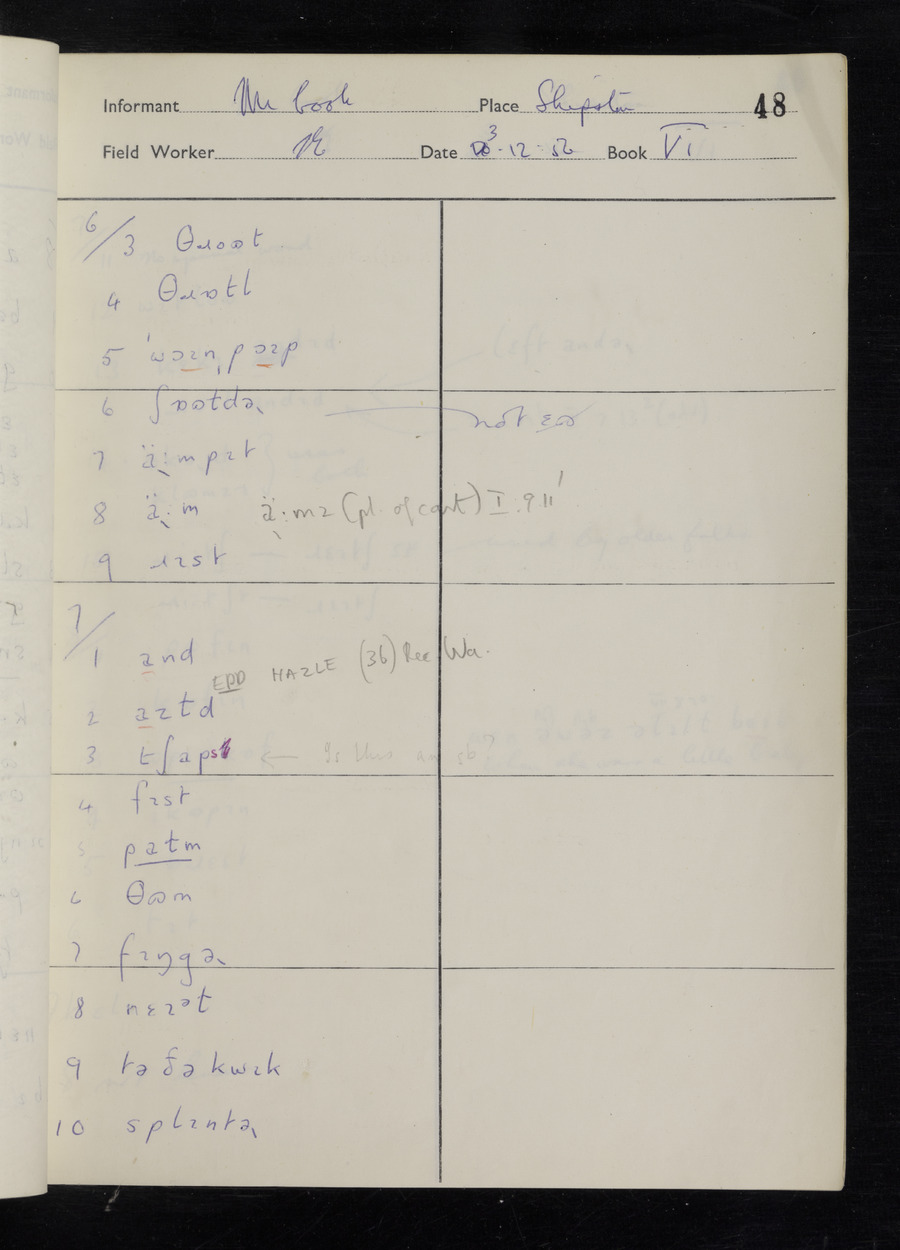 Informant Mr Cook Place Shipston 48
Field Worker Date 3.12.56 Book VI
6/3 θɹoʊt
4 θɹɒtl
5 ˈwɪnˌpɔɪp
6 ʃɒʊɫdə˞ not ɛʊ
7 ä˞:mpɪt
8 ä˞:m ä˞:mz (pl. of cart) I.9.11'
9 ɹɪst
7/
1 and
EDD HAZLE (3b) Rec Wa.
2 azɫd
3 tʃaps ← Is this an sb?
4 fɪst
5 paɫm
6 θʊm
7 fɪŋgə˞
8 nɛɪəɫ
9 tə ðə kwɪk
10 splɪntə˞